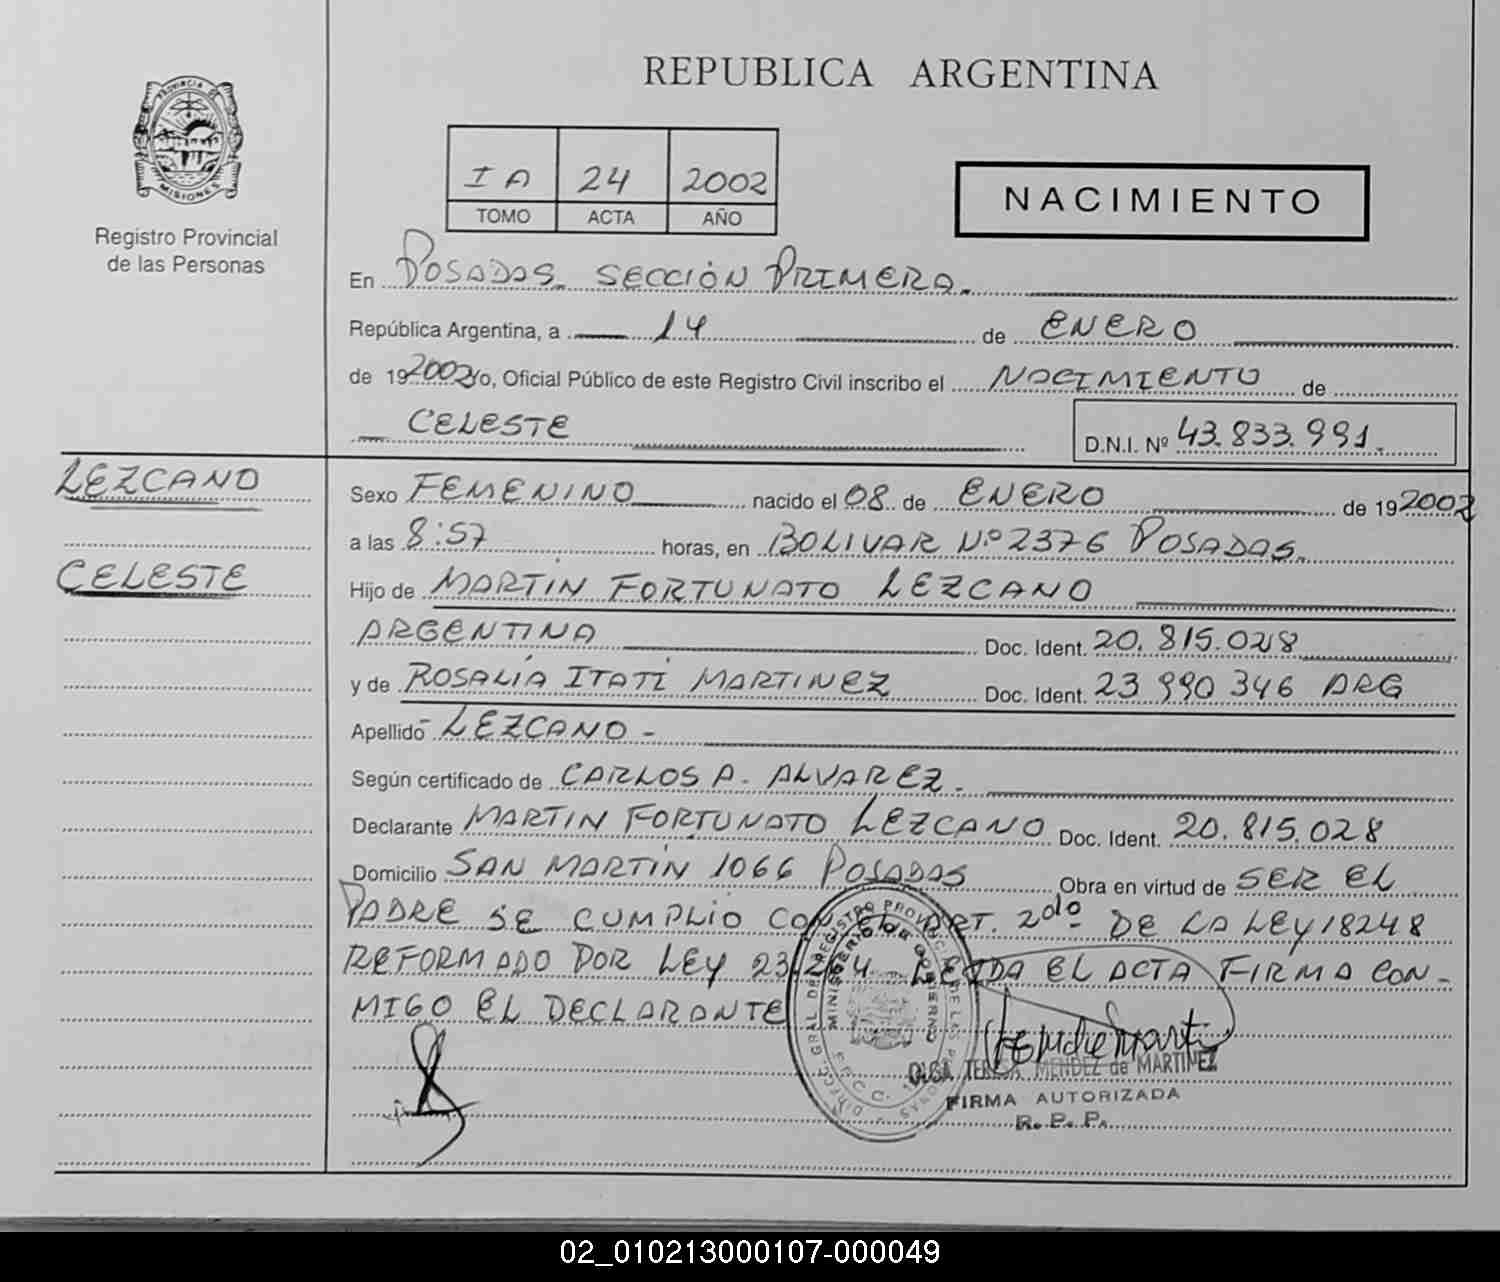 REPUBLICA ARGENTINA
PROVINCIA DE
MISIONES
Registro Provincial
de las Personas
I A 24 2002
TOMO ACTA AÑO
NACIMIENTO
En POSADAS. SECCIÓN PRIMERA.
República Argentina, a 14 de ENERO
de 19 2002 yo, Oficial Público de este Registro Civil inscribo el NACIMIENTO de
CELESTE D.N.I. Nº 43.833.991.
LEZCANO
CELESTE
Sexo FEMENINO nacido el 08 de ENERO de 19 2002
a las 8:57 horas, en BOLIVAR Nº 2376 POSADAS.
Hijo de MARTÍN FORTUNATO LEZCANO
ARGENTINA Doc. Ident. 20.815.028
y de ROSALÍA ITATÍ MARTINEZ Doc. Ident. 23 990 346 ARG
Apellido LEZCANO -
Según certificado de CARLOS A. ALVAREZ.
Declarante MARTÍN FORTUNATO LEZCANO Doc. Ident. 20.815.028
Domicilio SAN MARTÍN 1066 POSADAS Obra en virtud de SER EL
PADRE SE CUMPLIO CON EL ART. 2do DE LA LEY 18248
REFORMADO POR LEY LEIDA EL ACTA FIRMA CON-
MIGO EL DECLARANTE
MINISTERIO DE GOBIERNO
OLGA TERESA MENDEZ de MARTINEZ
FIRMA AUTORIZADA
R. P. P.
02_010213000107-000049